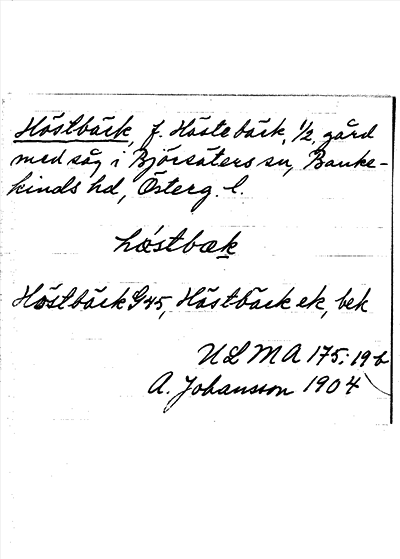 Höstbäck, f. Höstebäck, 1/2 gård
med såg i Björsäters sn, Banke-
kinds hd, Österg. l.
hǿstbæk
Höstbäck G45, Höstbäck ek, bek
ULMA 175:19 b
A. Johansson 1904